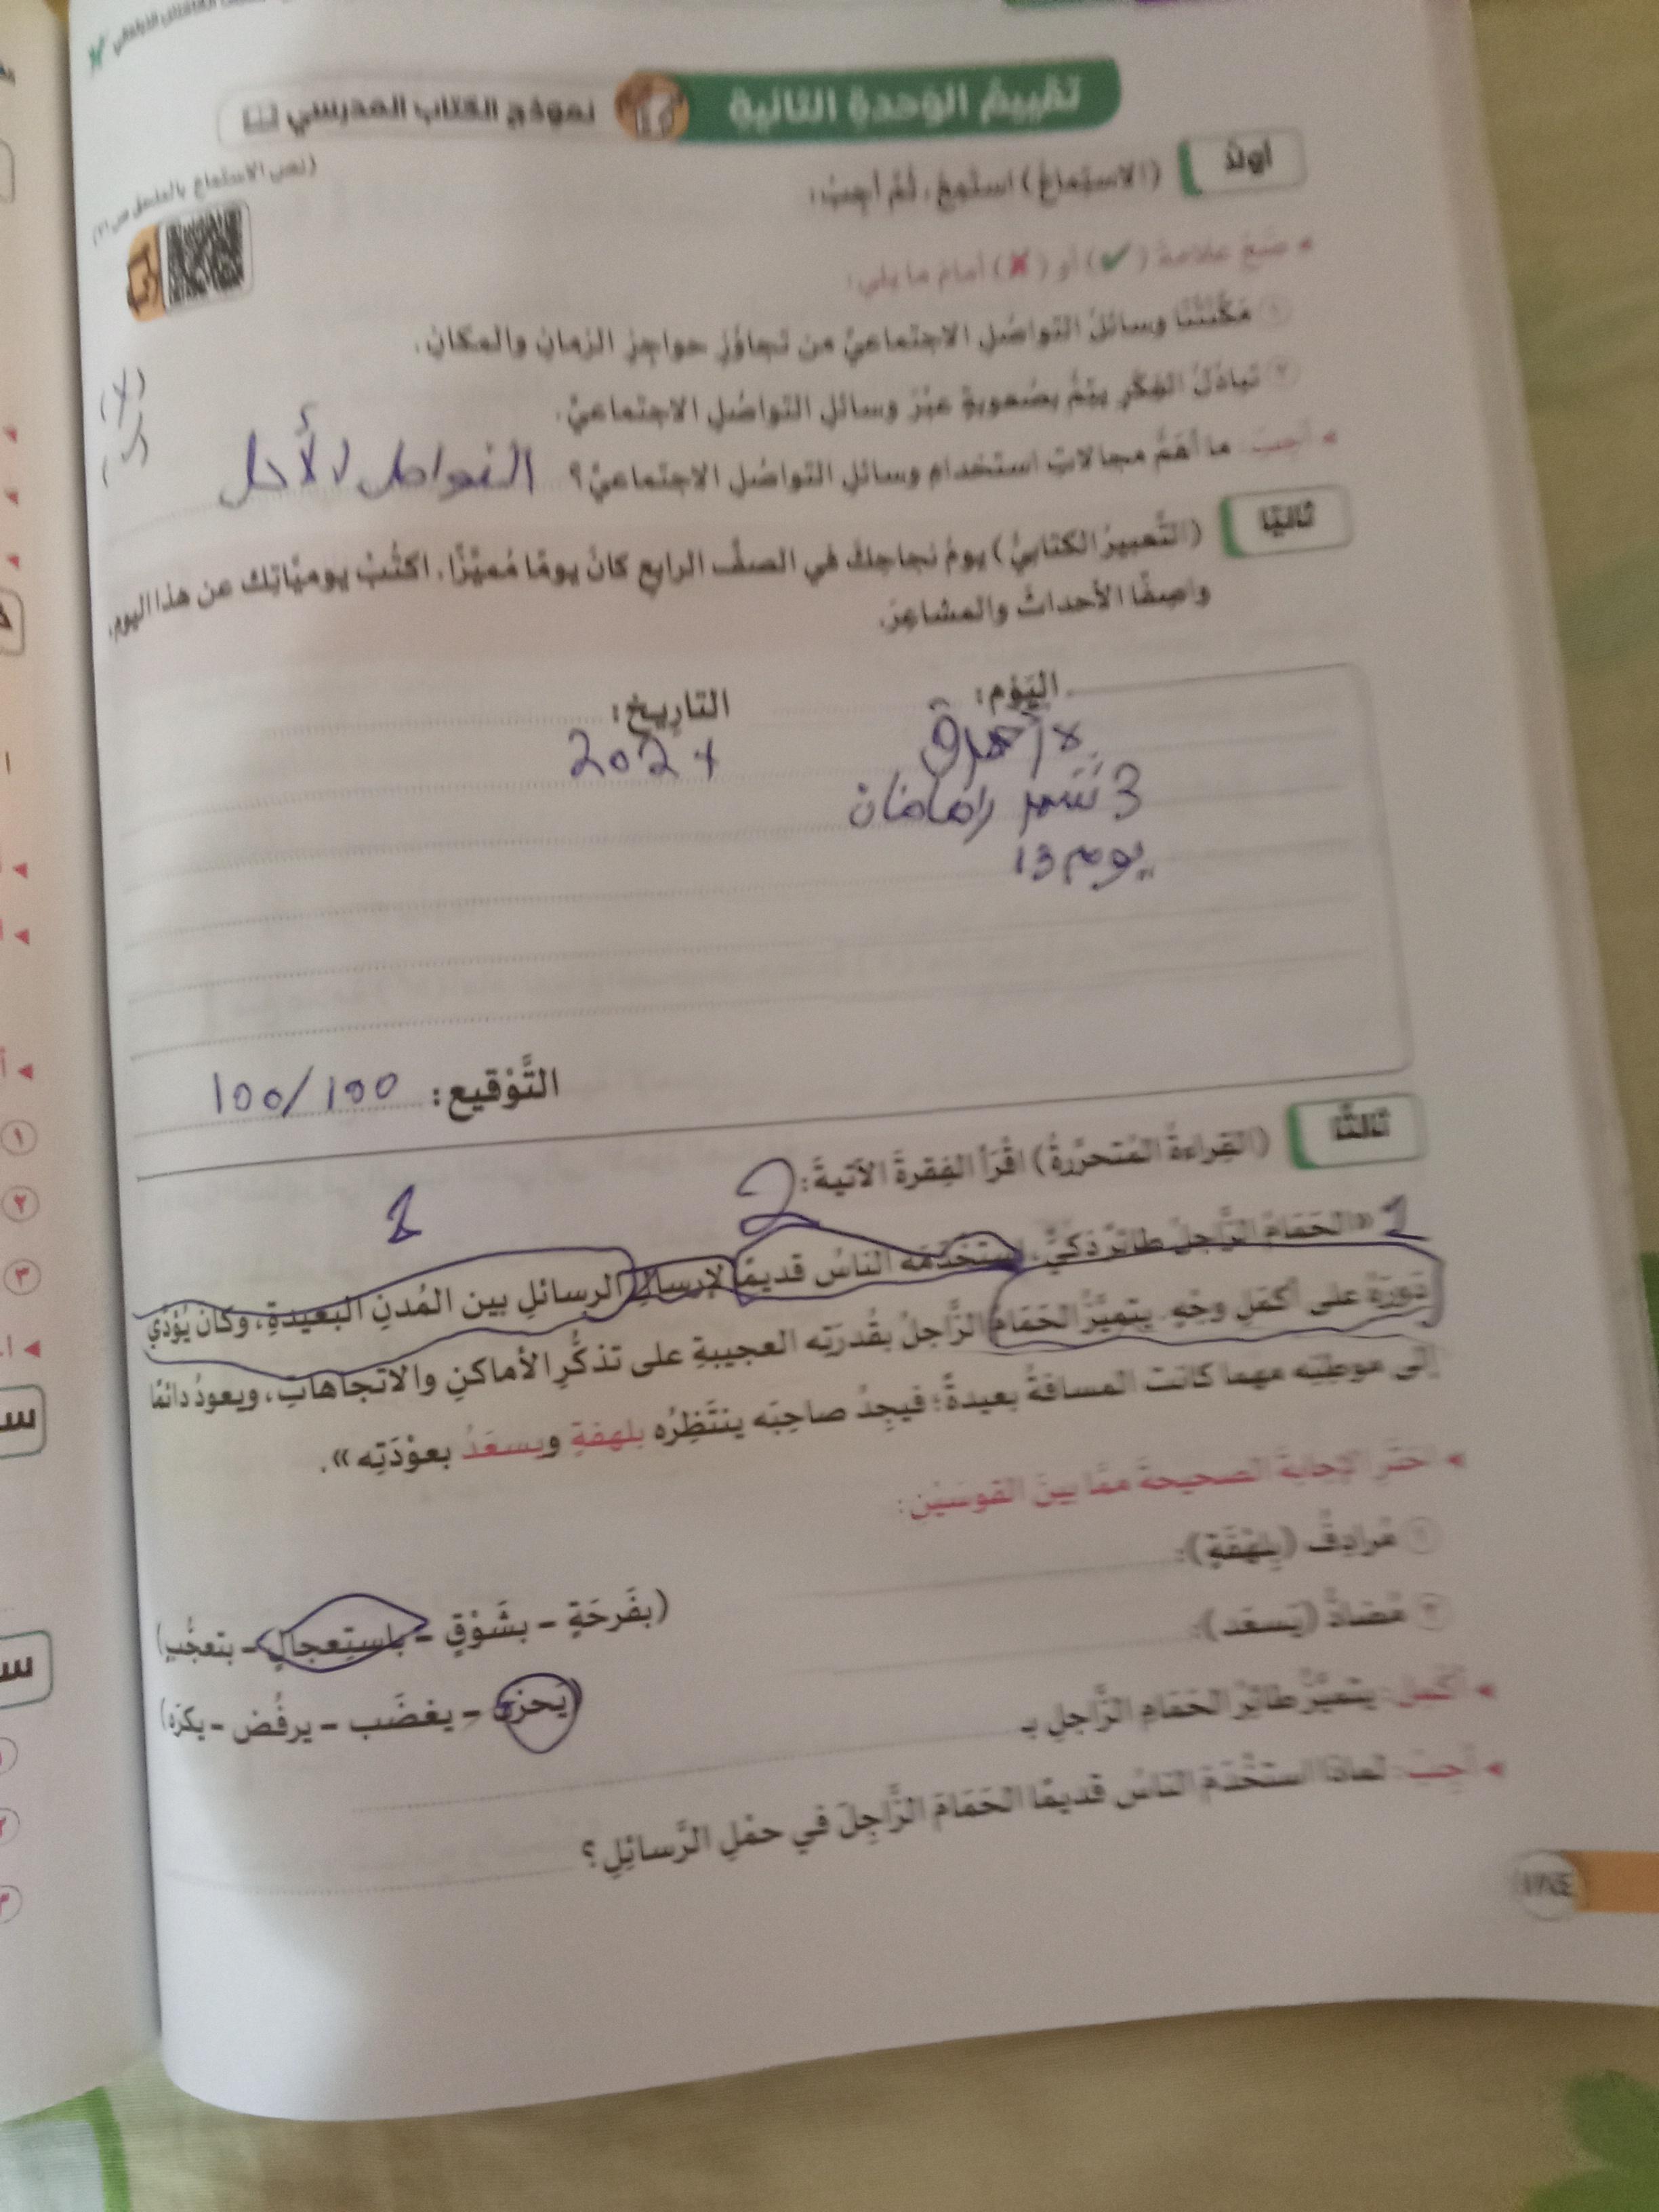 تقييم الوحدة الثانية
نموذج الكتاب المدرسي
أولًا
(الاستماعُ) استمِعْ، ثُمَّ أجِبْ:
(نص الاستماع بالملحق ص
ضَعْ علامةَ (✔) أو (✘) أمامَ ما يلي:
١ مَكَّنَتْنا وسائلُ التواصُلِ الاجتماعيِّ من تجاوُزِ حواجِزِ الزمانِ والمكانِ.
(
٢ تبادُلُ الفِكَرِ يتِمُّ بصُعوبةٍ عبْرَ وسائلِ التواصُلِ الاجتماعيِّ.
(
أجِبْ: ما أهَمُّ مجالاتِ استخدامِ وسائلِ التواصُلِ الاجتماعيِّ؟
التواصل
ثانيًا
(التَّعبيرُ الكتابيُّ) يومُ نجاحِكَ في الصفِّ الرابعِ كانَ يومًا مُميَّزًا. اكتُبْ يوميَّاتِك عن هذا اليومِ،
واصِفًا الأحداثَ والمشاعِرَ.
اليَوْم:
التاريخ:
202
3 شهر
يوم 13
التَّوْقيع: 100/100
ثالثًا
(القِراءةُ المُتحرِّرةُ) اقْرَأ الفِقرةَ الآتيةَ:
2
1
1
«الحَمَامُ الزَّاجِلُ طائرٌ ذكيٌّ، استخْدَمَه الناسُ قديمًا لإرسالِ الرسائلِ بين المُدنِ البَعيدةِ، وكانَ يُؤدِّي
دَورَهُ على أكمَلِ وجْهٍ. يتميَّزُ الحَمَامُ الزَّاجِلُ بقُدرَتِه العجيبةِ على تذكُّرِ الأماكنِ والاتجاهاتِ، ويعودُ دائمًا
إلى موطِنِه مهما كانت المسافةُ بعيدةً؛ فيجِدُ صاحِبَه ينتَظِرُه بلهفةٍ ويسعَدُ بعوْدَتِه».
اختَرِ الإجابةَ الصحيحةَ ممَّا بينَ القوسَيْنِ:
١ مُرادِفُ (بِلَهْفَةٍ):
(بفَرحَةٍ - بشَوْقٍ - باستِعجالٍ - بتعجُّبٍ)
٢ مُضادُّ (يَسعَد):
(يَحزَن - يغضَب - يرفُض - يكرَه)
أكمِلْ: يتميَّزُ طائرُ الحَمَامِ الزَّاجِلِ بـ
أجِبْ: لماذا استخْدَمَ الناسُ قديمًا الحَمَامَ الزَّاجِلَ في حمْلِ الرَّسائِلِ؟